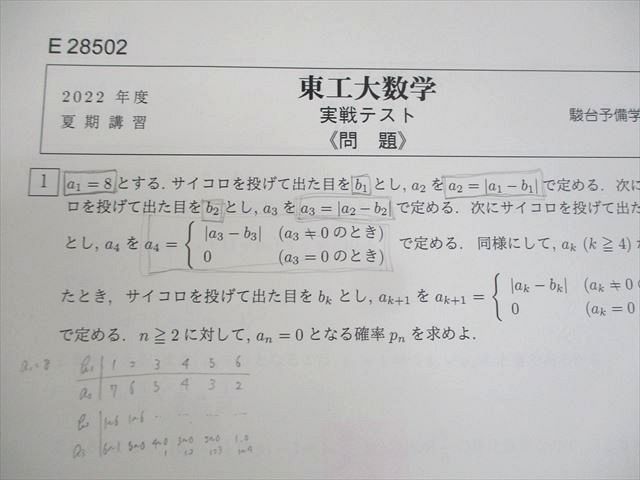 E 28502
2022 年度
夏期講習
東工大数学
実戦テスト
《問 題》
駿台予備学
1 a₁ = 8 とする. サイコロを投げて出た目を b₁ とし, a₂ を a₂ = |a₁ − b₁| で定める. 次に
ロを投げて出た目を b₂ とし, a₃ を a₃ = |a₂ − b₂| で定める. 次にサイコロを投げて出た
とし, a₄ を a₄ = { |a₃ − b₃| (a₃ ≠ 0 のとき) 0 (a₃ = 0 のとき) で定める. 同様にして, aₖ (k ≧ 4)
たとき, サイコロを投げて出た目を bₖ とし, aₖ₊₁ を aₖ₊₁ = { |aₖ − bₖ| (aₖ ≠ 0 0 (aₖ = 0
で定める. n ≧ 2 に対して, aₙ = 0 となる確率 pₙ を求めよ.
a₁=8 b₁ 1 2 3 4 5 6
a₂ 7 6 5 4 3 2
b₂ 1~6 1~6
a₃